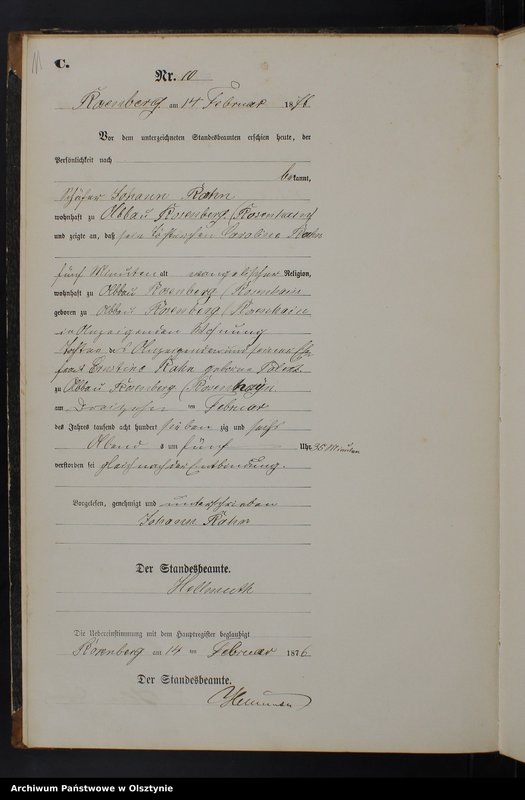 11
C.
Nr. 10
Rosenberg am 14 Februar 1876
Vor dem unterzeichneten Standesbeamten erschien heute, der
Persönlichkeit nach
bekannt,
Schäfer Johann Rahn
wohnhaft zu Abbau Rosenberg (Rosenhain)
und zeigte an, daß sein Töchterchen Caroline Rahn
fünf Minuten alt evangelischer Religion,
wohnhaft zu Abbau Rosenberg (Rosenhain
geboren zu Abbau Rosenberg (Rosenhain
in Anzeigenden Wohnung
Tochter des Anzeigenden und seiner Ehe
frau Ernstine Rahn geborne
zu Abbau Rosenberg (Rosenhain
am Dreizehn ten Februar
des Jahres tausend acht hundert sieben zig und sechs
Abend s um fünf Uhr 35 Minuten
verstorben sei gleich nach der Entbindung.
Vorgelesen, genehmigt und unterschrieben
Johann Rahn
Der Standesbeamte.
Hellmuth
Die Uebereinstimmung mit dem Hauptregister beglaubigt
Rosenberg am 14 ten Februar 1876
Der Standesbeamte.
Archiwum Państwowe w Olsztynie